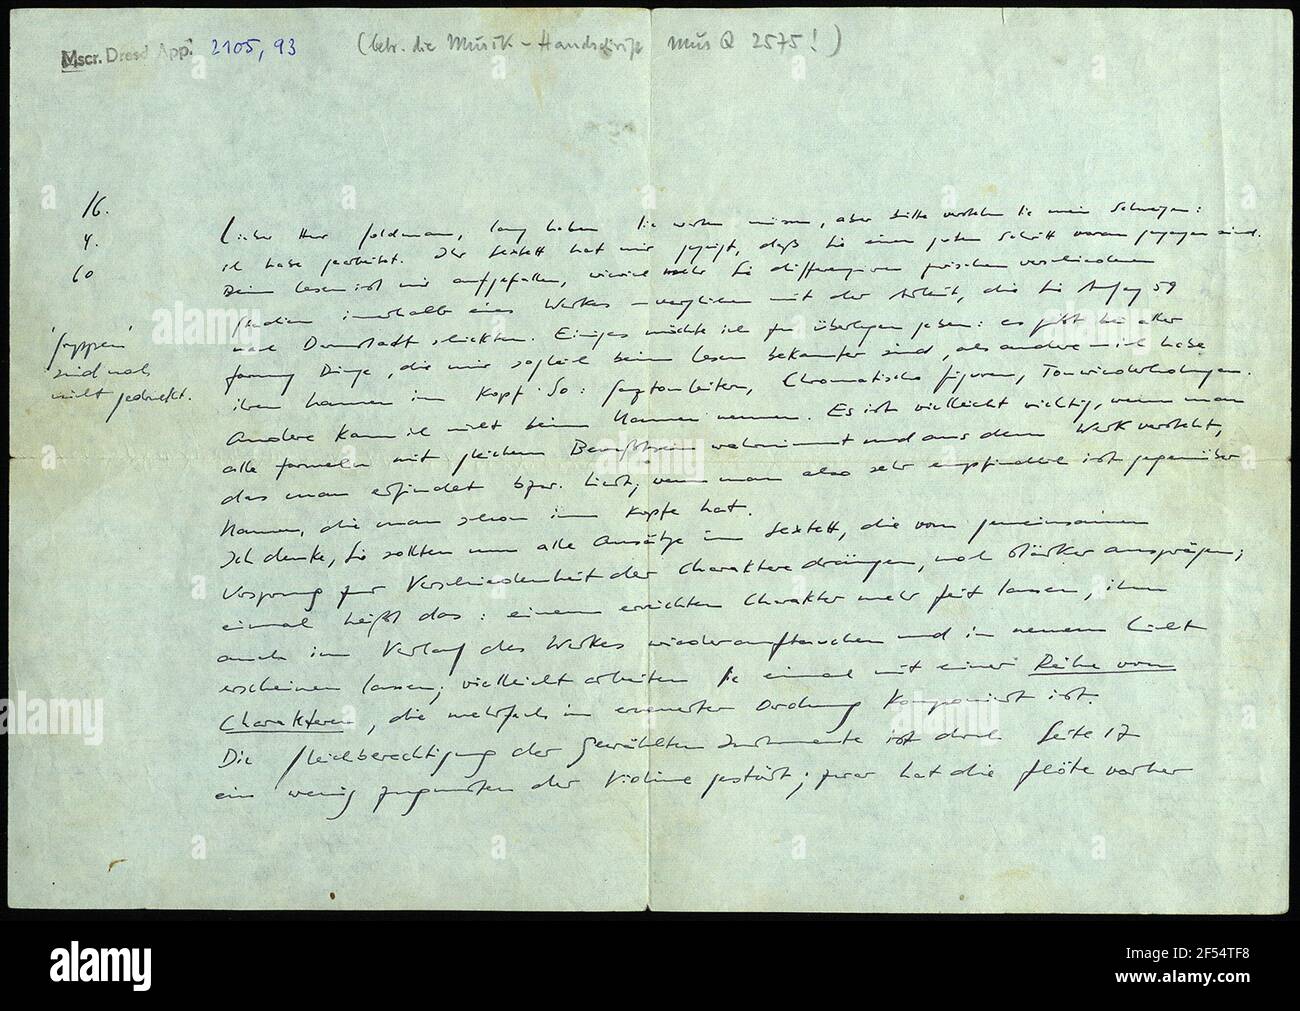 Mscr. Dresd. App. 2105, 93 (betr. die Musik-Handschrift Mus Q 2575!)
16.
4.
60
'Gruppen'
sind noch
nicht gedruckt.
Lieber Herr Goldmann, lang haben Sie warten müssen, aber bitte verstehn Sie mein Schweigen:
ich habe gearbeitet. Ihr Sextett hat mir gezeigt, daß Sie einen guten Schritt voran gegangen sind.
Beim Lesen ist mir aufgefallen, wieviel mehr Sie differenzieren zwischen verschiedenen
Graden innerhalb eines Werkes – verglichen mit der Arbeit, die Sie Anfang 59
nach Darmstadt schickten. Einiges möchte ich zu überlegen geben: es gibt bei aller
Formung Dinge, die mir sogleich beim Lesen bekannter sind, als andere – ich habe
ihren Namen im Kopf. So: Ganztonleitern, Chromatische Figuren, Tonwiederholungen.
Andere kann ich nicht beim Namen nennen. Es ist vielleicht wichtig, wenn man
alle Formeln mit gleichem Bewußtsein wahrnimmt und aus dem Werk versteht,
das man erfindet bzw. hört; wenn man also sehr empfindlich ist gegenüber
Namen, die man schon im Kopfe hat.
Ich denke, Sie sollten nun alle Ansätze im Sextett, die vom gemeinsamen
Ursprung zur Verschiedenheit der Charaktere drängen, noch stärker ausprägen;
einmal heißt das: einem erreichten Charakter mehr Zeit lassen, ihn
auch im Verlauf des Werkes wiederauftauchen und in neuem Licht
erscheinen lassen; vielleicht arbeiten Sie einmal mit einer Reihe von
Charakteren, die mehrfach in erneuerter Ordnung komponiert ist.
Die Gleichberechtigung der gewählten Instrumente ist durch Seite 17
ein wenig zugunsten der Violine gestört; zwar hat die Flöte vorher
alamy
Image ID: 2F54TF8
www.alamy.com